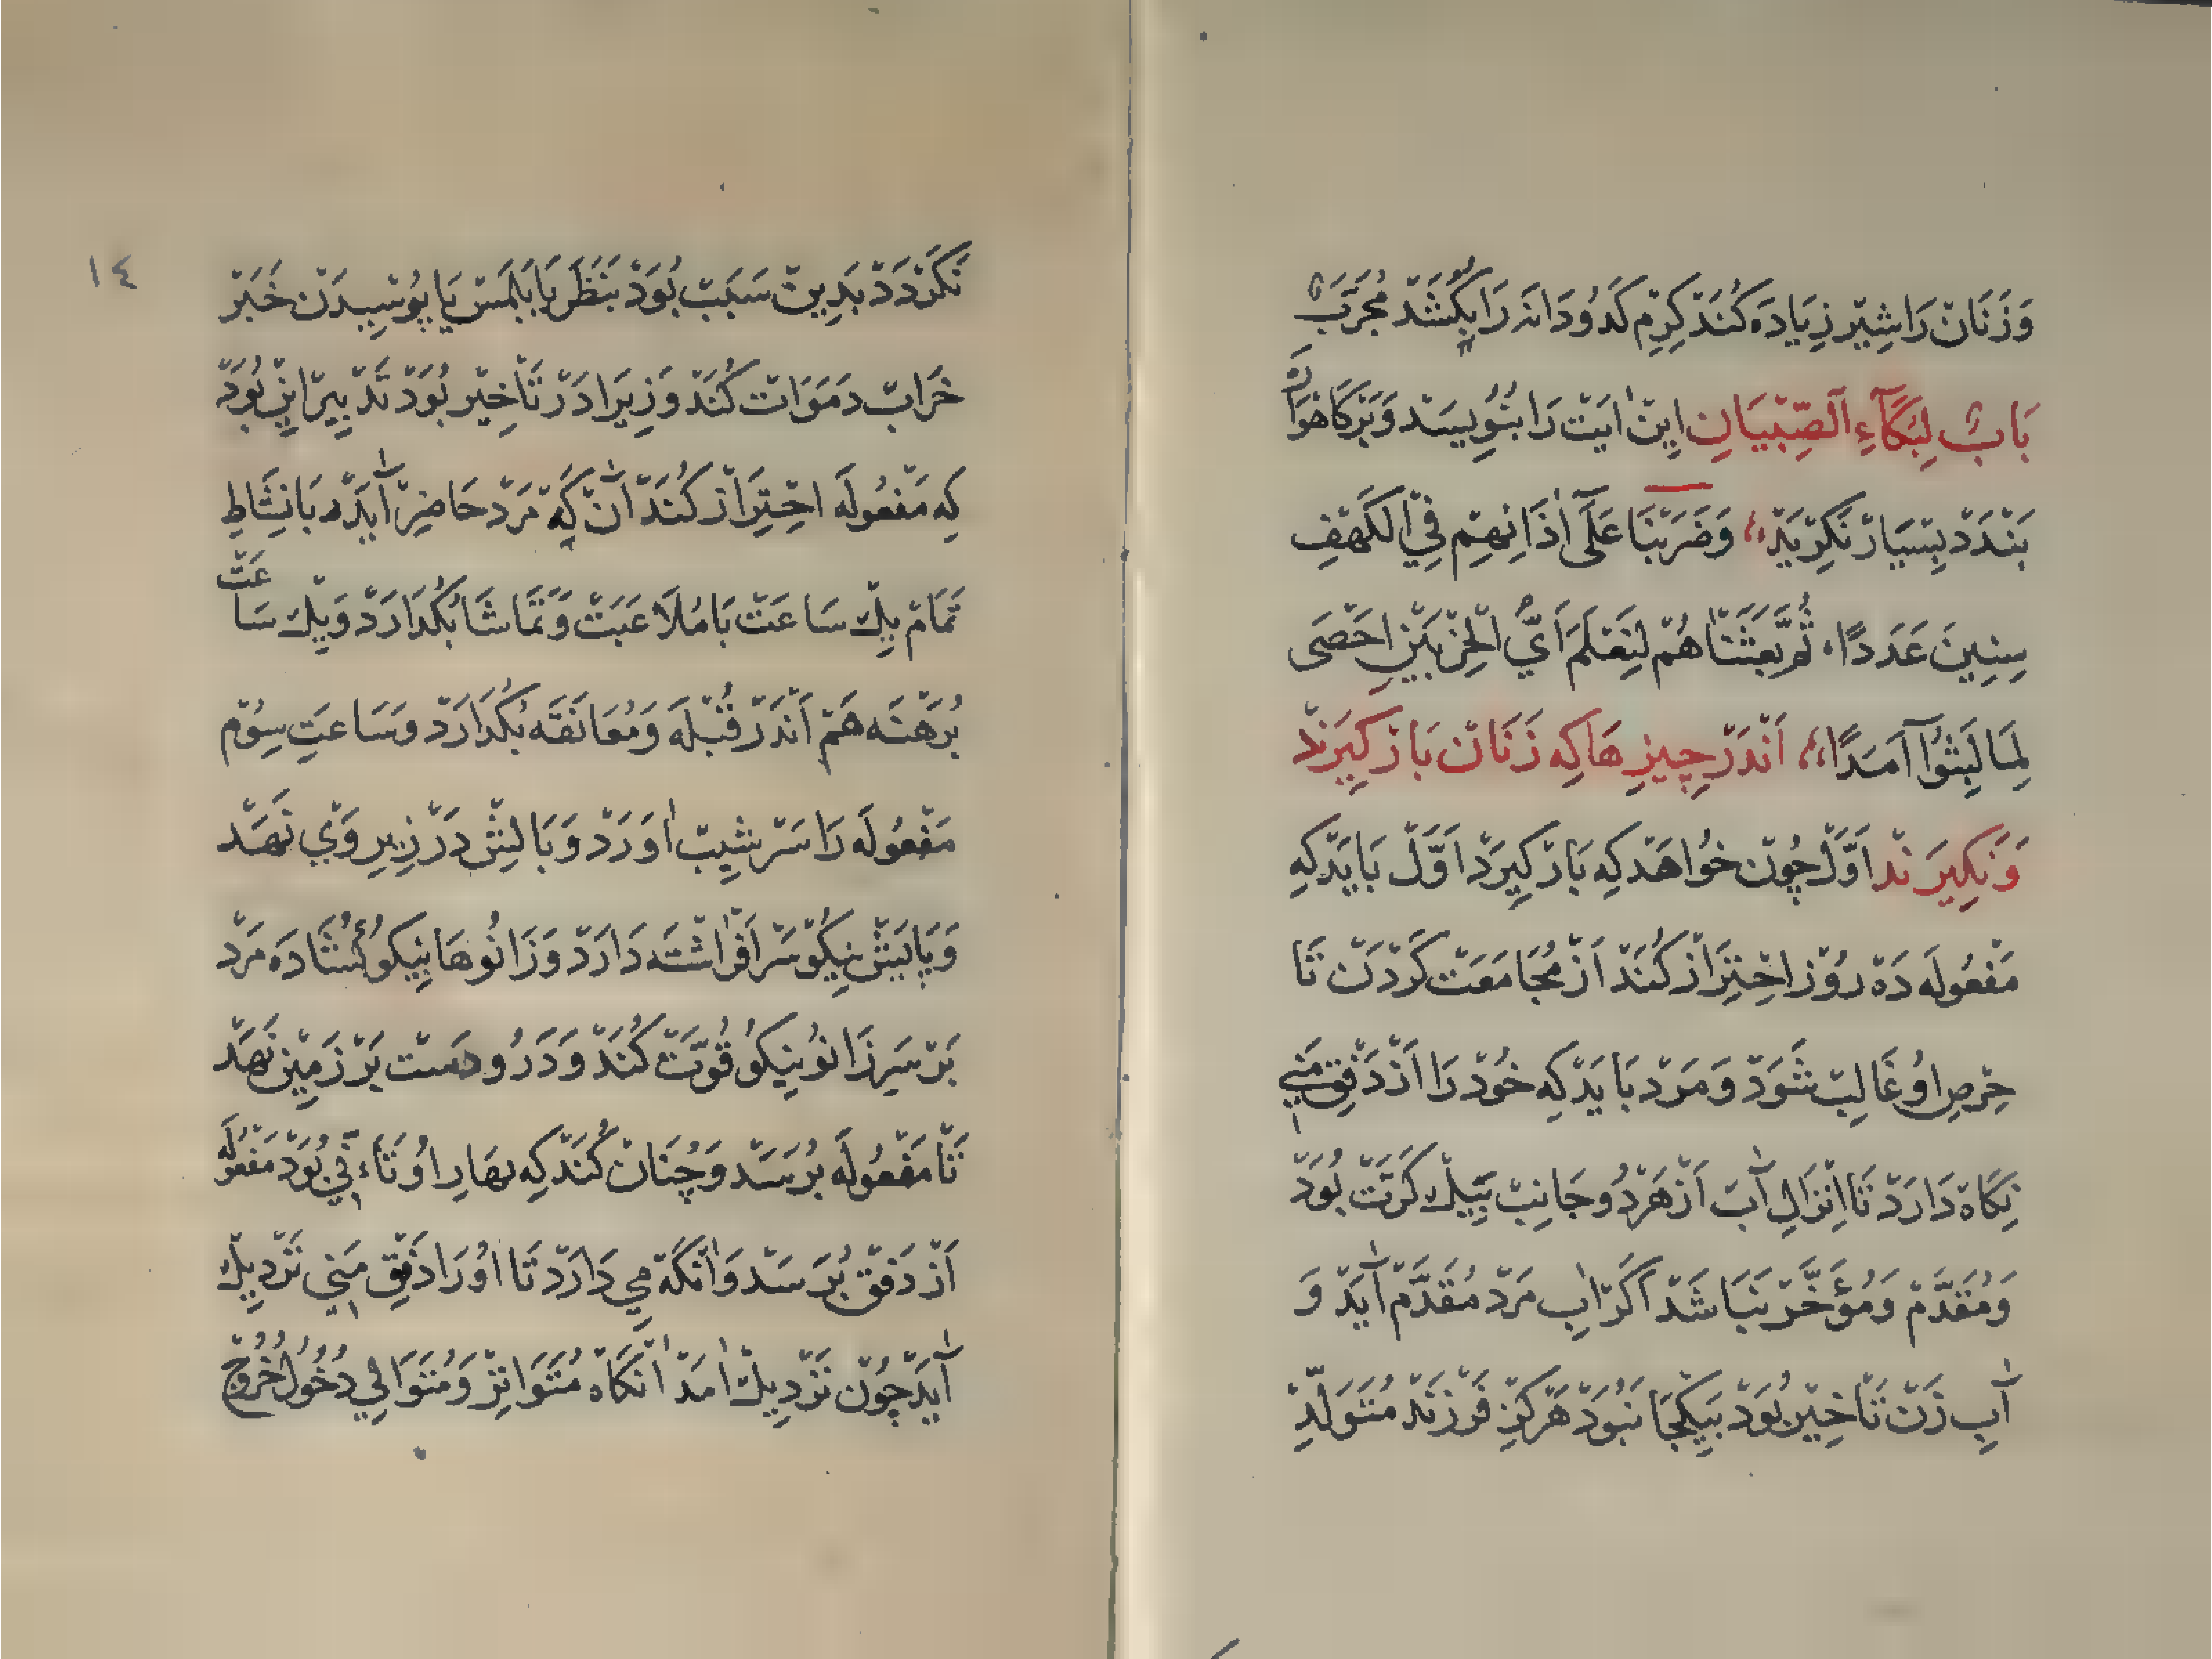 وَزَنَانْ رَا شِيْر زِيَادَه كُنَدْ كِرِمْ كَدُو دَانَه رَا بِكُشَدْ مُجَرَّبْ
بَابْ لِبُكَآءِ الصِّبْيَانِ اِينْ اٰيَتْ رَا بِنُوِيسَدْ وَبَرْ كَاهْوَارَه
بَنْدَدْ بِسْيَارْ نَكِرْيَدْ، وَضَرَبْنَا عَلَىٰٓ اٰذَانِهِمْ فِي الْكَهْفِ
سِنِينَ عَدَدًا، ثُمَّ بَعَثْنَاهُمْ لِنَعْلَمَ اَيُّ الْحِزْبَيْنِ اَحْصَى
لِمَا لَبِثُوْآ اَمَدًا، اَنْدَرْ چِيزِ هَا كِه زَنَانْ بَازْ كِيرَنْد
وَنَكِيرَنْد اَوَّلْ چُونْ خُوَاهَدْ كِه بَازْ كِيرَدْ اَوَّلْ بَايَدْ كِه
مَفْعُولَه دَهْ رُوْز اِحْتِرَازْ كُنَدْ اَزْ مُجَامَعَتْ كَرْدَنْ تَا
حِرْصِ اُو غَالِبْ شَوَدْ وَمَرْدْ بَايَدْ كِه خُودْ رَا اَزْ دَفْقِ مَنِي
نِكَاهْ دَارَدْ تَا اِنْزَالِ اٰبْ اَزْ هَرْدُو جَانِبْ بِيِكْ كَرَّتْ بُوَدْ
وَمُقَدَّمْ وَمُؤَخَّرْ نَبَاشَدْ اَكَرْ اٰبِ مَرْدْ مُقَدَّمْ اٰيَدْ وَ
اٰبِ زَنْ تَاخِيْر بُوَدْ بِيَكْجَا نَبُوَدْ هَرْكِزْ فَرْزَنْدْ مُتَوَلِّدْ
نَكَرْدَدْ بَدِينْ سَبَبْ بُوَدْ بَنَظَرْ يَا بَلَمْسْ يَا بِبُوسِيدَنْ خَبَرْ
خَرَابْ دَمَوَاتْ كُنَدْ وَزِيرَا دَرْ تَاخِيْر بُوَدْ تَدْبِيرْ اِينْ بُوَدْ
كِه مَفْعُولَه اِحْتِرَازْ كُنَدْ اٰنْ كِه مَرْدْ حَاضِرْ اٰيَدْ بَا نِشَاطِ
تَمَامْ يِكْ سَاعَتْ بَا مُلَاعَبَتْ وَتَمَاشَا بُكْدَارَدْ وَيِكْ سَاعَتْ
بُرَهْنَه هَمْ اَنْدَرْ قُبْلَه وَمُعَانَقَه بُكْدَارَدْ وَسَاعَتِ سِوُمْ
مَفْعُولَه رَا سَرْ شِيبْ اٰوَرَدْ وَبَالِشْ دَرْ زِيرِ وَيْ نَهَدْ
وَپَايَشْ نِيكُو سَرْ اَفْرَاشْتَه دَارَدْ وَزَانُوهَا نِيكُو كُشَادَه مَرْد
بَرْ سَرِ زَانُو نِيكُو قُوَّتْ كُنَدْ وَدَرُو دَسْت بَرْ زَمِينْ نَهَدْ
تَا مَفْعُولَه بُرَسَدْ وَچُنَانْ كُنَدْ كِه بهَارِ اُو تَاءِ فِي بُوَدْ مَفْعُولَه
اَزْ دَفْقْ بُرَسَدْ وَاٰنْكَهْ مِي دَارَدْ تَا اُو رَا دَفْقِ مَنِي نَزْدِيكْ
اٰيَدْ چُونْ نَزْدِيكْ اٰمَدْ اٰنْكَاهْ مُتَوَاتِرْ وَمُتَوَالِي دُخُولْ خُرُوجْ
١٤